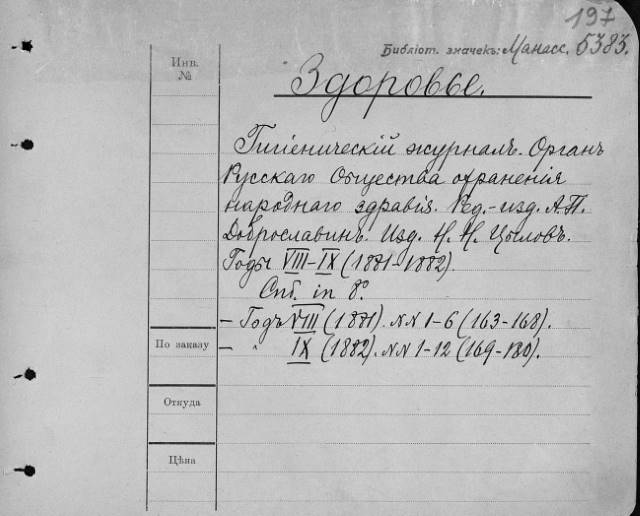 197
Библіот. значекъ: Манасс. 5383.
Инв.
№
Здоровье.
Гигіеническій журналъ. Органъ
Русскаго Общества охраненія
народнаго здравія. Ред.-изд. А.П.
Доброславинъ. Изд. Н. Н. Цыловъ.
Годы VIII-IX (1881-1882).
Спб. in 8°.
- Годъ VIII (1881). NN 1-6 (163-168).
По заказу
- " IX (1882). NN 1-12 (169-180).
Откуда
Цѣна